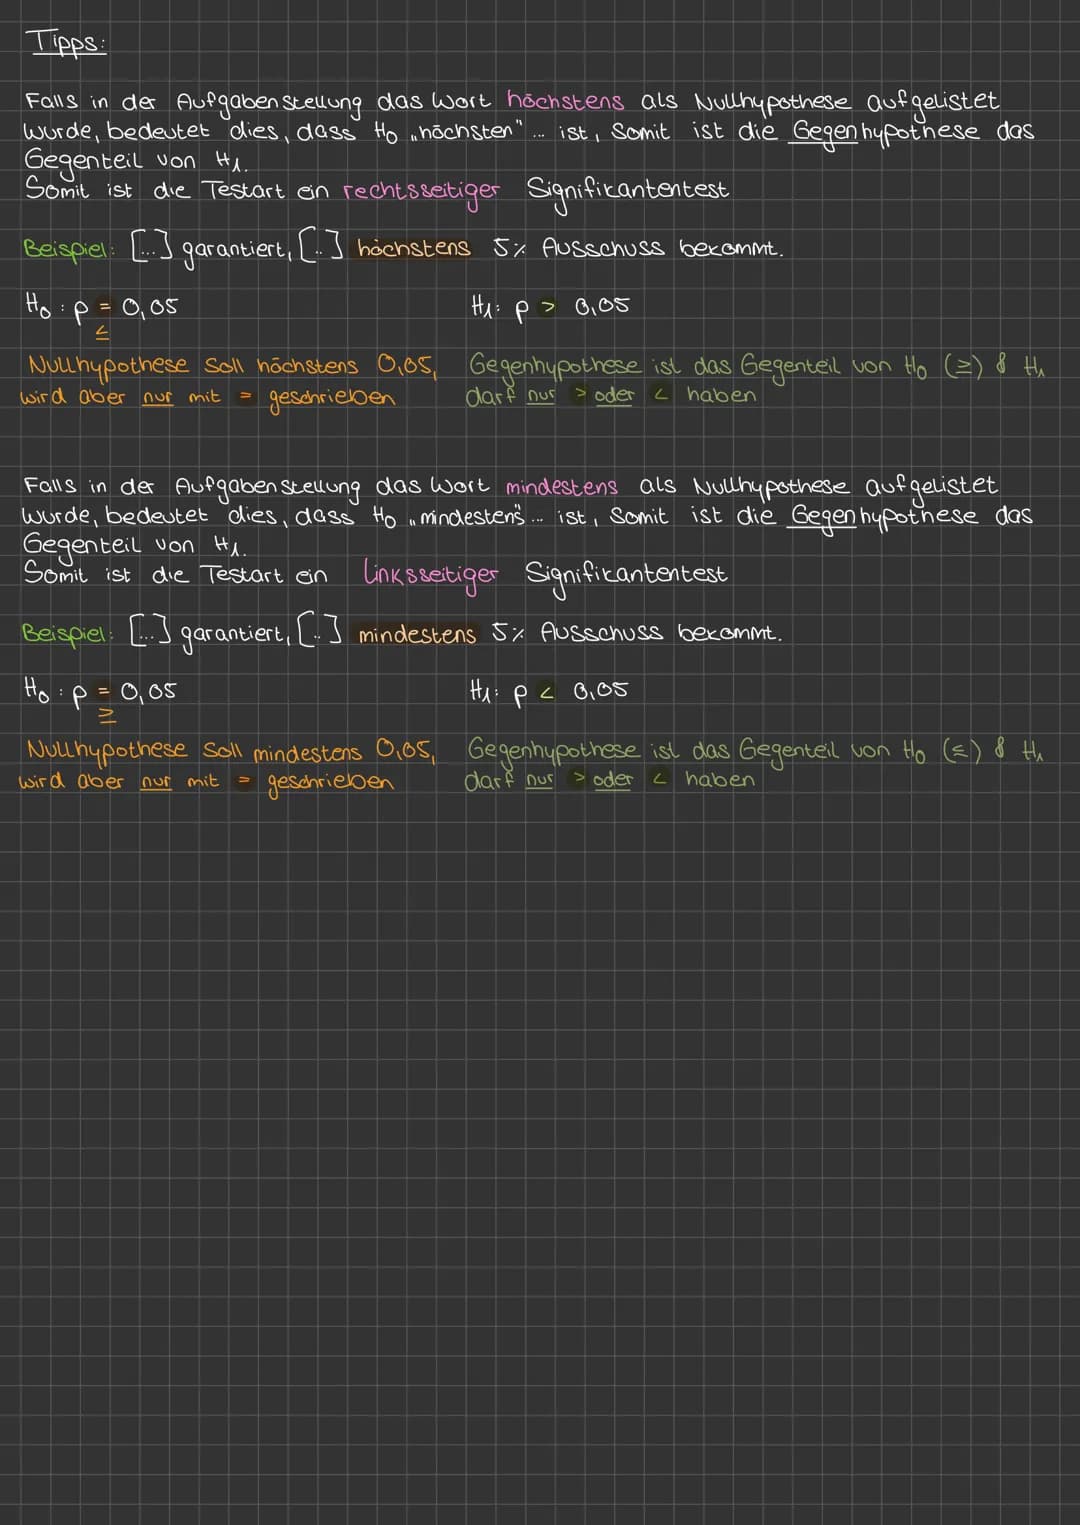 Tipps:
Falls in der Aufgabenstellung das Wort höchstens als Nullhypothese aufgelistet
wurde, bedeutet dies, dass H₀ „höchsten" ... ist, Somit ist die Gegenhypothese das
Gegenteil von H₁.
Somit ist die Testart ein rechtsseitiger Signifikantentest
Beispiel: [...] garantiert, [..] höchstens 5% Ausschuss bekommt.
H₀ : p = 0,05 H₁: p > 0,05
≤
Nullhypothese Soll höchstens 0,05, Gegenhypothese ist das Gegenteil von H₀ (≥) & H₁
wird aber nur mit = geschrieben darf nur > oder < haben
Falls in der Aufgabenstellung das Wort mindestens als Nullhypothese aufgelistet
wurde, bedeutet dies, dass H₀ „mindestens" ... ist, Somit ist die Gegenhypothese das
Gegenteil von H₁.
Somit ist die Testart ein Linksseitiger Signifikantentest
Beispiel: [...] garantiert, [..] mindestens 5% Ausschuss bekommt.
H₀ : p = 0,05 H₁: p < 0,05
≥
Nullhypothese Soll mindestens 0,05, Gegenhypothese ist das Gegenteil von H₀ (≤) & H₁
wird aber nur mit = geschrieben darf nur > oder < haben